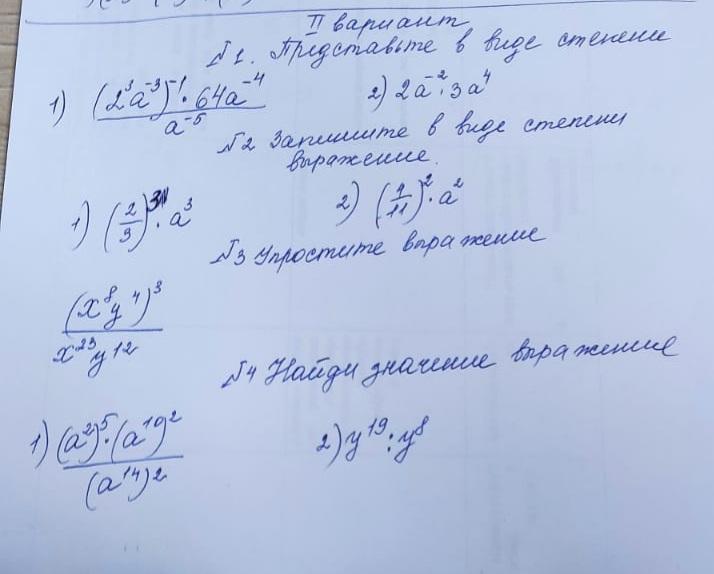 II вариант
№1. Представьте в виде степени
1) (2³a⁻³)⁻¹·64a⁻⁴ / a⁻⁵
2) 2a⁻²·3a⁴
№2 Запишите в виде степени
выражение.
1) (2/3)³·a³
2) (9/11)²·a²
№3 Упростите выражение
(x⁸y⁴)³ / x²³y¹²
№4 Найди значение выражение
1) (a²)⁵·(a¹⁰)² / (a¹⁴)²
2) y¹⁹:y⁸